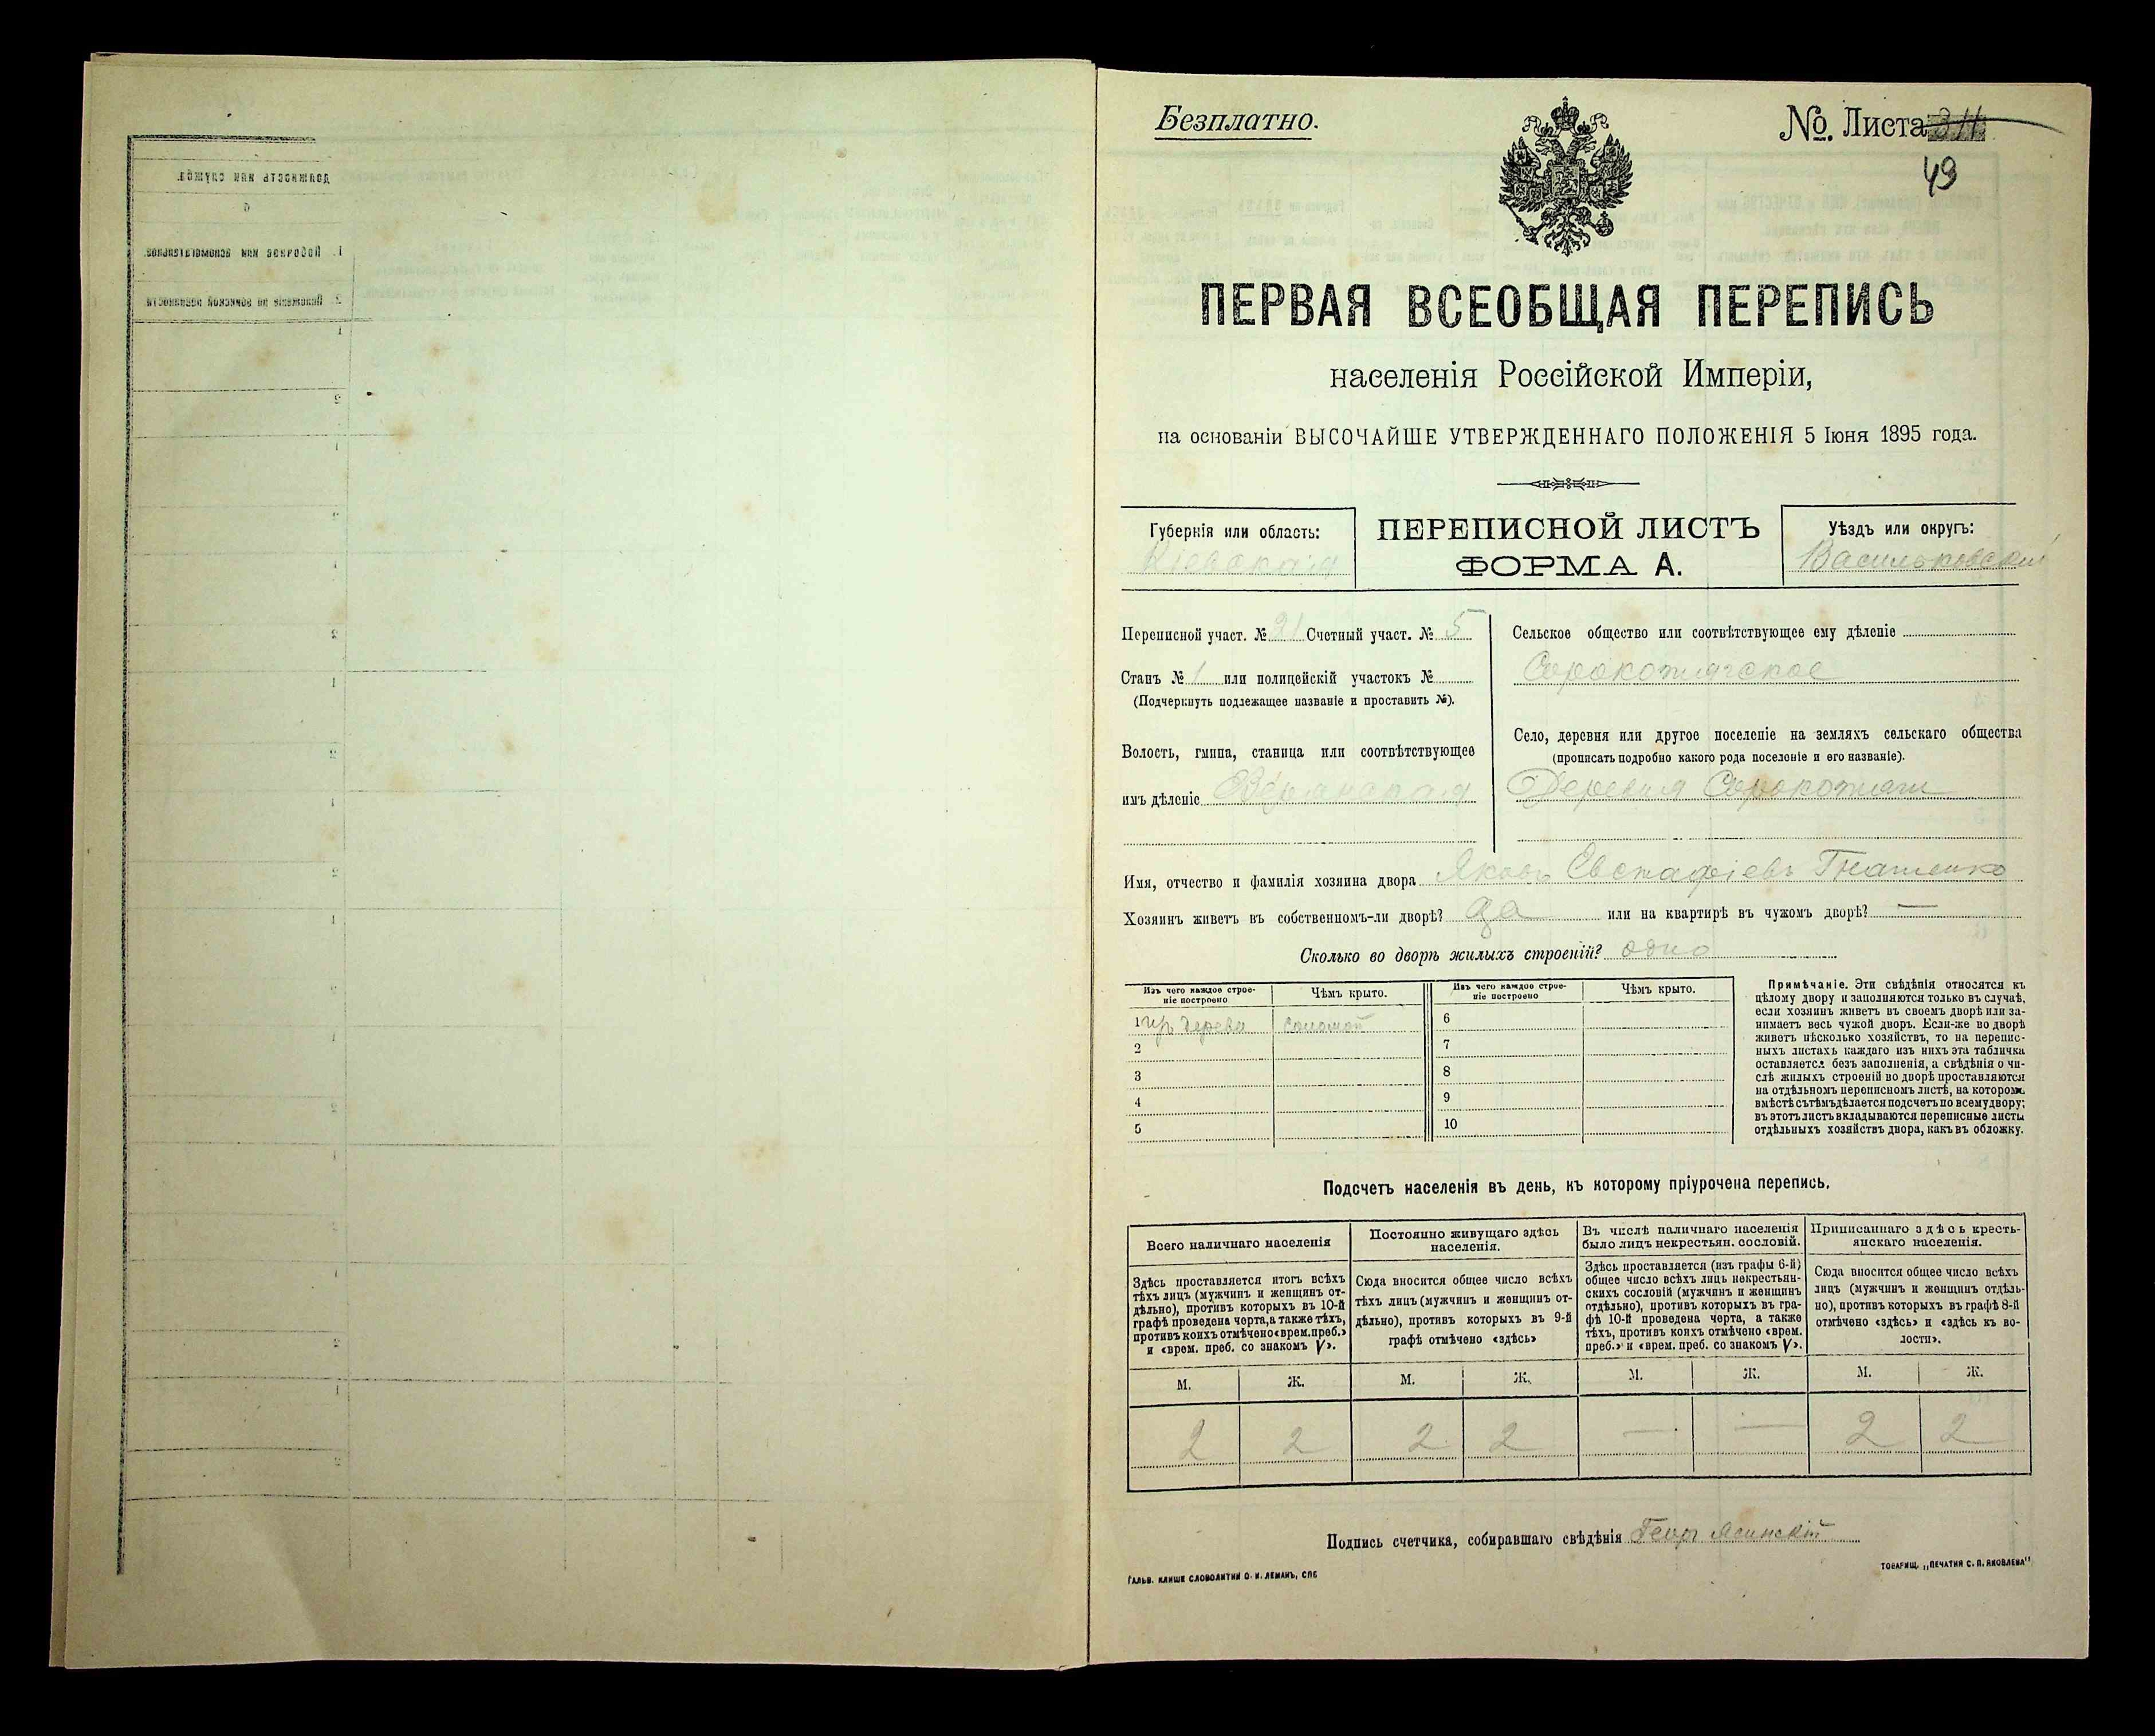 Безплатно.
№. Листа
49
ПЕРВАЯ ВСЕОБЩАЯ ПЕРЕПИСЬ
населенія Россійской Имперіи,
на основаніи ВЫСОЧАЙШЕ УТВЕРЖДЕННАГО ПОЛОЖЕНІЯ 5 Іюня 1895 года.
Губернія или область:
Кіевская
ПЕРЕПИСНОЙ ЛИСТЪ
ФОРМА А.
Уѣздъ или округъ:
Васильковскій
Переписной участ. № 21 Счетный участ. № 5
Станъ № 1 или полицейскій участокъ №
(Подчеркнуть подлежащее названіе и проставить №).
Волость, гмина, станица или соотвѣтствующее
имъ дѣленіе
Сельское общество или соотвѣтствующее ему дѣленіе
Сорокотягское
Село, деревня или другое поселеніе на земляхъ сельскаго общества
(прописать подробно какого рода поселеніе и его названіе).
Деревня Сорокотяги
Имя, отчество и фамилія хозяина двора Яковъ Евстафіевъ Гнатенко
Хозяинъ живетъ въ собственномъ-ли дворѣ? да или на квартирѣ въ чужомъ дворѣ? —
Сколько во дворѣ жилыхъ строеній? одно
Изъ чего каждое строе-
ніе построено
Чѣмъ крыто.
1 изъ дерева соломой
2
3
4
5
Изъ чего каждое строе-
ніе построено
Чѣмъ крыто.
6
7
8
9
10
Примѣчаніе. Эти свѣдѣнія относятся къ
цѣлому двору и заполняются только въ случаѣ,
если хозяинъ живетъ въ своемъ дворѣ или за-
нимаетъ весь чужой дворъ. Если-же во дворѣ
живетъ нѣсколько хозяйствъ, то на перепис-
ныхъ листахъ каждаго изъ нихъ эта табличка
оставляется безъ заполненія, а свѣдѣнія о чи-
слѣ жилыхъ строеній во дворѣ проставляются
на отдѣльномъ переписномъ листѣ, на которомъ
вмѣстѣ съ тѣмъ дѣлается подсчетъ по всему двору;
въ этотъ листъ вкладываются переписные листы
отдѣльныхъ хозяйствъ двора, какъ въ обложку.
Подсчетъ населенія въ день, къ которому пріурочена перепись.
Всего наличнаго населенія
Здѣсь проставляется итогъ всѣхъ
тѣхъ лицъ (мужчинъ и женщинъ от-
дѣльно), противъ которыхъ въ 10-й
графѣ проведена черта, а также тѣхъ,
противъ коихъ отмѣчено «врем. преб.»
и «врем. преб. со знакомъ V».
М. Ж.
2 2
Постоянно живущаго здѣсь
населенія.
Сюда вносится общее число всѣхъ
тѣхъ лицъ (мужчинъ и женщинъ от-
дѣльно), противъ которыхъ въ 9-й
графѣ отмѣчено «здѣсь»
М. Ж.
2 2
Въ числѣ наличнаго населенія
было лицъ некрестьян. сословій.
Здѣсь проставляется (изъ графы 6-й)
общее число всѣхъ лицъ некрестьян-
скихъ сословій (мужчинъ и женщинъ
отдѣльно), противъ которыхъ въ гра-
фѣ 10-й проведена черта, а также
тѣхъ, противъ коихъ отмѣчено «врем.
преб.» и «врем. преб. со знакомъ V».
М. Ж.
— —
Приписаннаго здѣсь кресть-
янскаго населенія.
Сюда вносится общее число всѣхъ
лицъ (мужчинъ и женщинъ отдѣль-
но), противъ которыхъ въ графѣ 8-й
отмѣчено «здѣсь» и «здѣсь къ во-
лости».
М. Ж.
2 2
Подпись счетчика, собиравшаго свѣдѣнія Геор Ясинскій
ГАЛЬВ. КЛИШЕ СЛОВОЛИТНИ О. И. ЛЕМАНЪ, СПБ
ТОВАРИЩ. „ПЕЧАТНЯ С. П. ЯКОВЛЕВА"